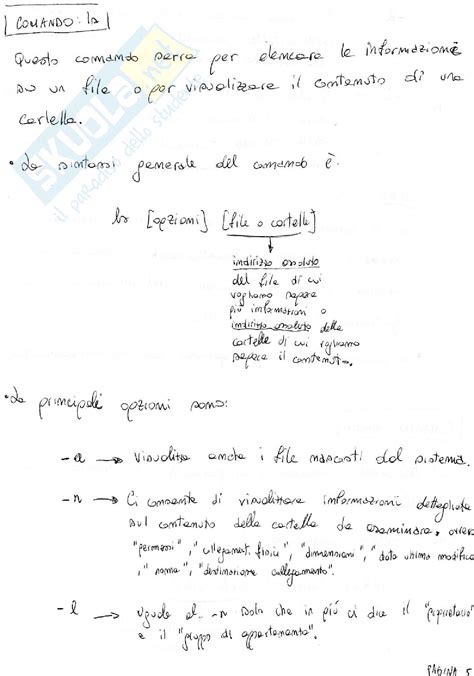 COMANDO: ls
Questo comando serve per elencare le informazioni
su un file o per visualizzare il contenuto di una
cartella.
• La sintassi generale del comando è:
ls [opzioni] [file o cartelle]
indirizzo assoluto
del file di cui
vogliamo sapere
più informazioni o
indirizzo assoluto della
cartella di cui vogliamo
sapere il contenuto.
• Le principali opzioni sono:
-a → Visualizza anche i file nascosti dal sistema.
-n → Ci consente di visualizzare informazioni dettagliate
sul contenuto della cartella da esaminare, ovvero
"permessi", "collegament. fisici", "dimensioni", "data ultima modifica"
, "nome", "destinazione collegamento".
-l → uguale al -n solo che in più ci dice il "proprietario"
e il "gruppo di appartenenza".
PAGINA 5
SKUOLA.net
il paradiso dello studente